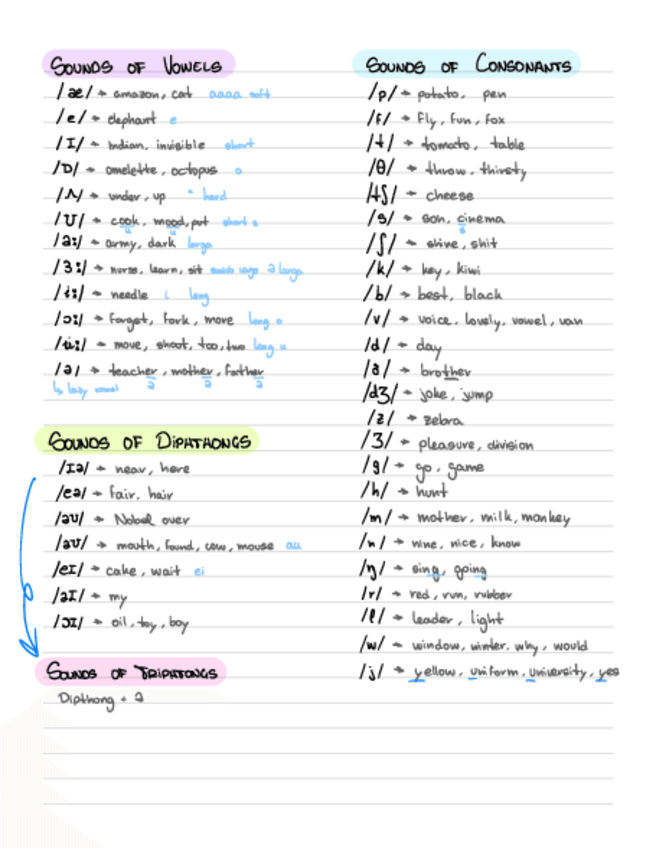 SOUNDS OF VOWELS
/æ/ → amazon, cat aaaa soft
/e/ → elephant e
/I/ → Indian, invisible short
/ɒ/ → omelette, octopus o
/ʌ/ → under, up hard
/ʊ/ → cook, mood, put short u
/a:/ → army, dark larga
/ɜ:/ → nurse, learn, sir larga
/i:/ → needle i long
/ɔ:/ → forget, fork, move long o
/u:/ → move, shoot, too, two long u
/ə/ → teacher, mother, father
↳ lazy vowel ə ə ə
SOUNDS OF DIPHTHONGS
/Iə/ → near, here
/eə/ → fair, hair
/əʊ/ → Nobel over
/aʊ/ → mouth, found, cow, mouse au
/eI/ → cake, wait ei
/aI/ → my
/ɔI/ → oil, toy, boy
SOUNDS OF TRIPHTONGS
Dipthong + ə
SOUNDS OF CONSONANTS
/p/ → potato, pen
/f/ → fly, fun, fox
/t/ → tomato, table
/θ/ → throw, thirsty
/tʃ/ → cheese
/s/ → son, cinema
s
/ʃ/ → shine, shit
/k/ → key, kiwi
/b/ → best, black
/v/ → voice, lovely, vowel, van
/d/ → day
/ð/ → brother
/dʒ/ → joke, jump
/z/ → zebra
/ʒ/ → pleasure, division
/g/ → go, game
/h/ → hunt
/m/ → mother, milk, monkey
/n/ → nine, nice, know
/ŋ/ → sing, going
/r/ → red, run, rubber
/l/ → leader, light
/w/ → window, winter, why, would
/j/ → yellow, uniform, university, yes